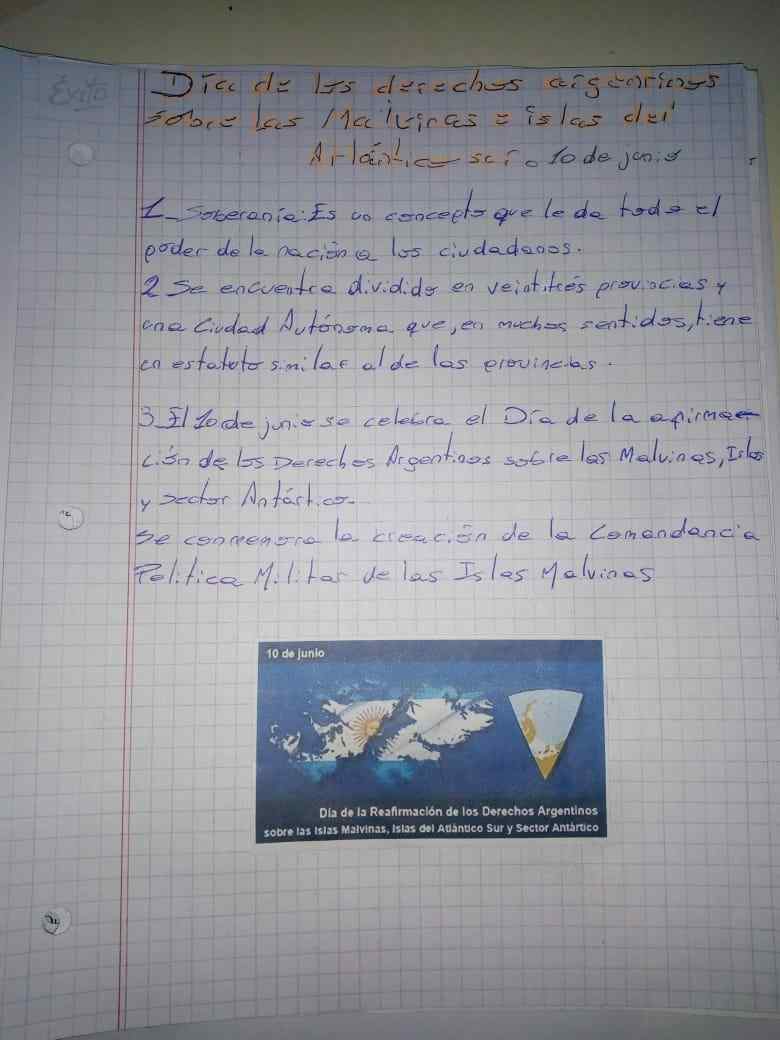 Éxito
Día de los derechos argentinos
sobre las Malvinas e islas del
Atlántico sur. 10 de junio
1_ Soberanía: Es un concepto que le da todo el
poder de la nación a los ciudadanos.
2 Se encuentra dividido en veintitrés provincias y
una Ciudad Autónoma que, en muchos sentidos, tiene
un estatuto similar al de las provincias.
3_ El 10 de junio se celebra el Día de la afirma
ción de los Derechos Argentinos sobre las Malvinas, Islas
y sector Antártico.
Se conmemora la creación de la Comandancia
Política Militar de las Islas Malvinas
10 de junio
Día de la Reafirmación de los Derechos Argentinos
sobre las Islas Malvinas, Islas del Atlántico Sur y Sector Antártico